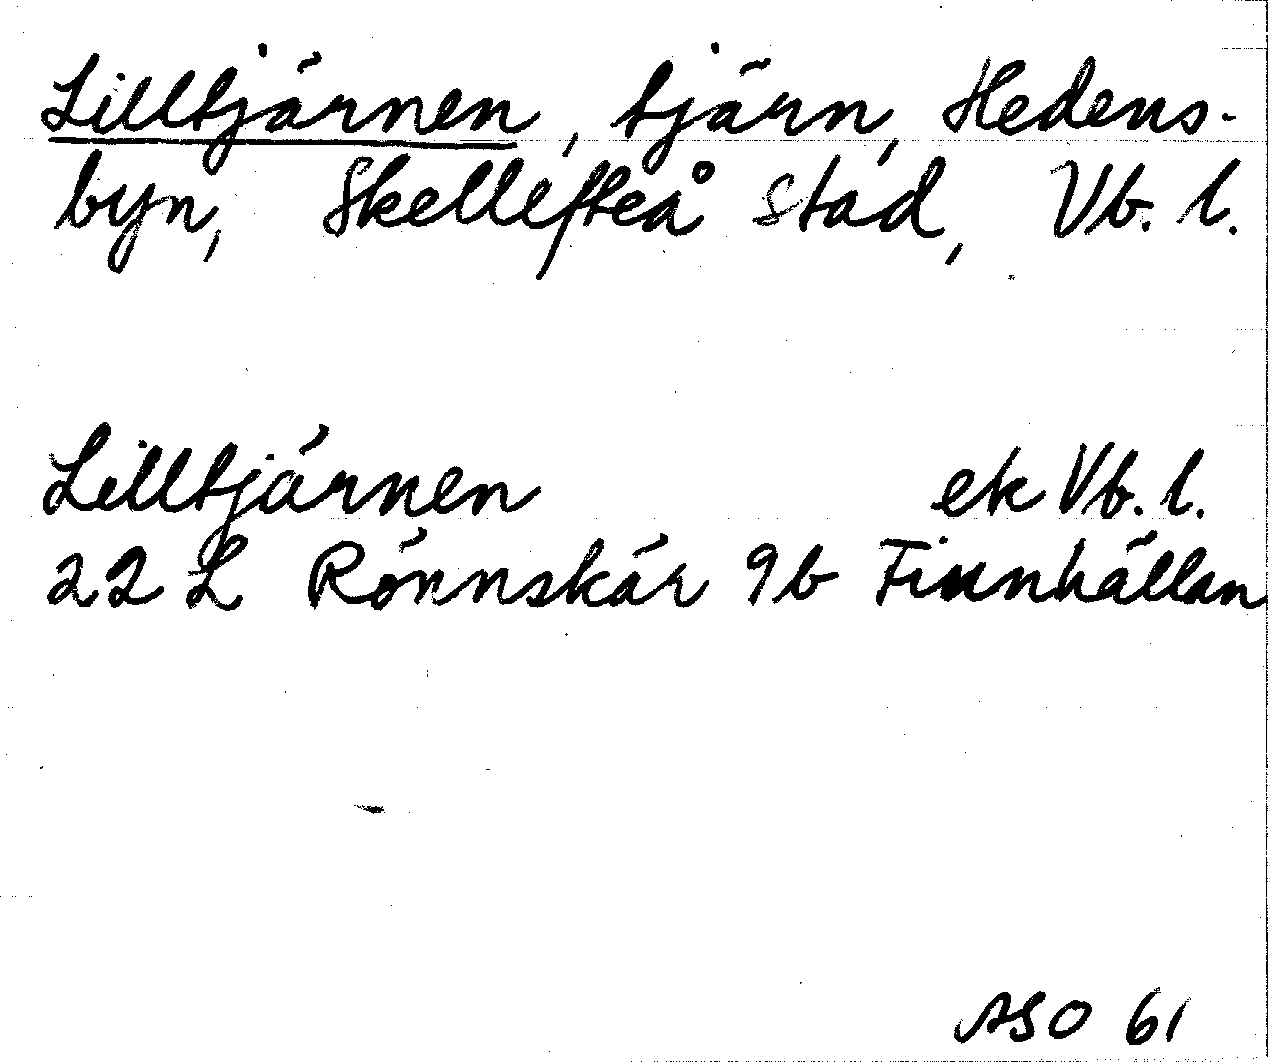 Lilltjärnen, tjärn, Hedens-
byn, Skellefteå stad, Vb. l.
Lilltjärnen ek Vb. l.
22 L Rönnskär 9b Finnhällan
ASO 61